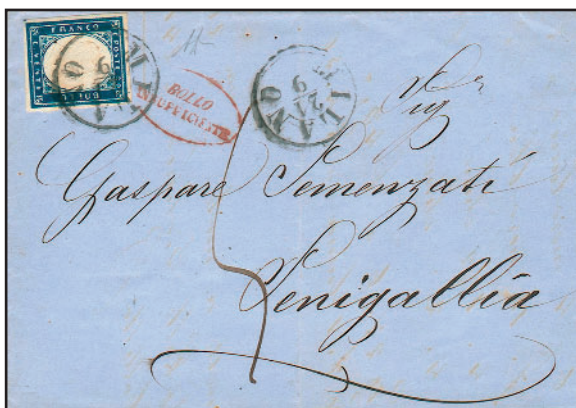 FRANCO
POSTE
BOLLO
MILANO
21
9
BOLLO
INSUFFICIENTE
MILANO
21
9
Sig.r
Gaspare Semenzati
Senigallia
5